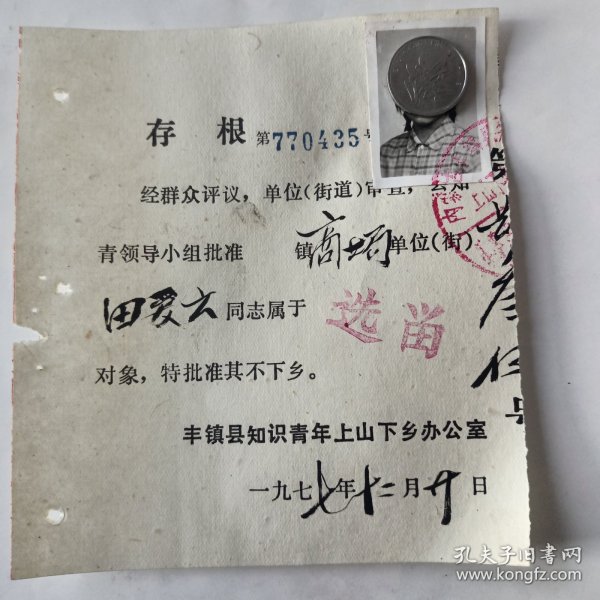 存 根 第770435号
经群众评议，单位（街道）审查，县知
青领导小组批准 镇 单位（街）
田爱六同志属于 选留
对象，特批准其不下乡。
丰镇县知识青年上山下乡办公室
一九七七年十二月廿日
孔夫子旧书网
www.kongfz.com